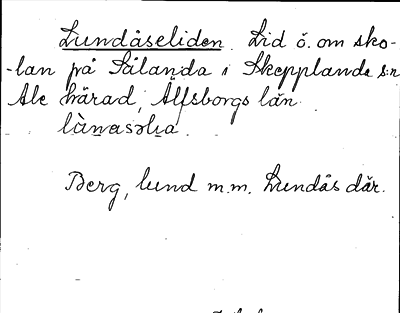 Lundåseliden. Lid ö. om sko-
-lan på Sålanda i Skepplanda s:n
Ale härad, Älfsborgs län.
Berg, lund m.m. Lundås där.